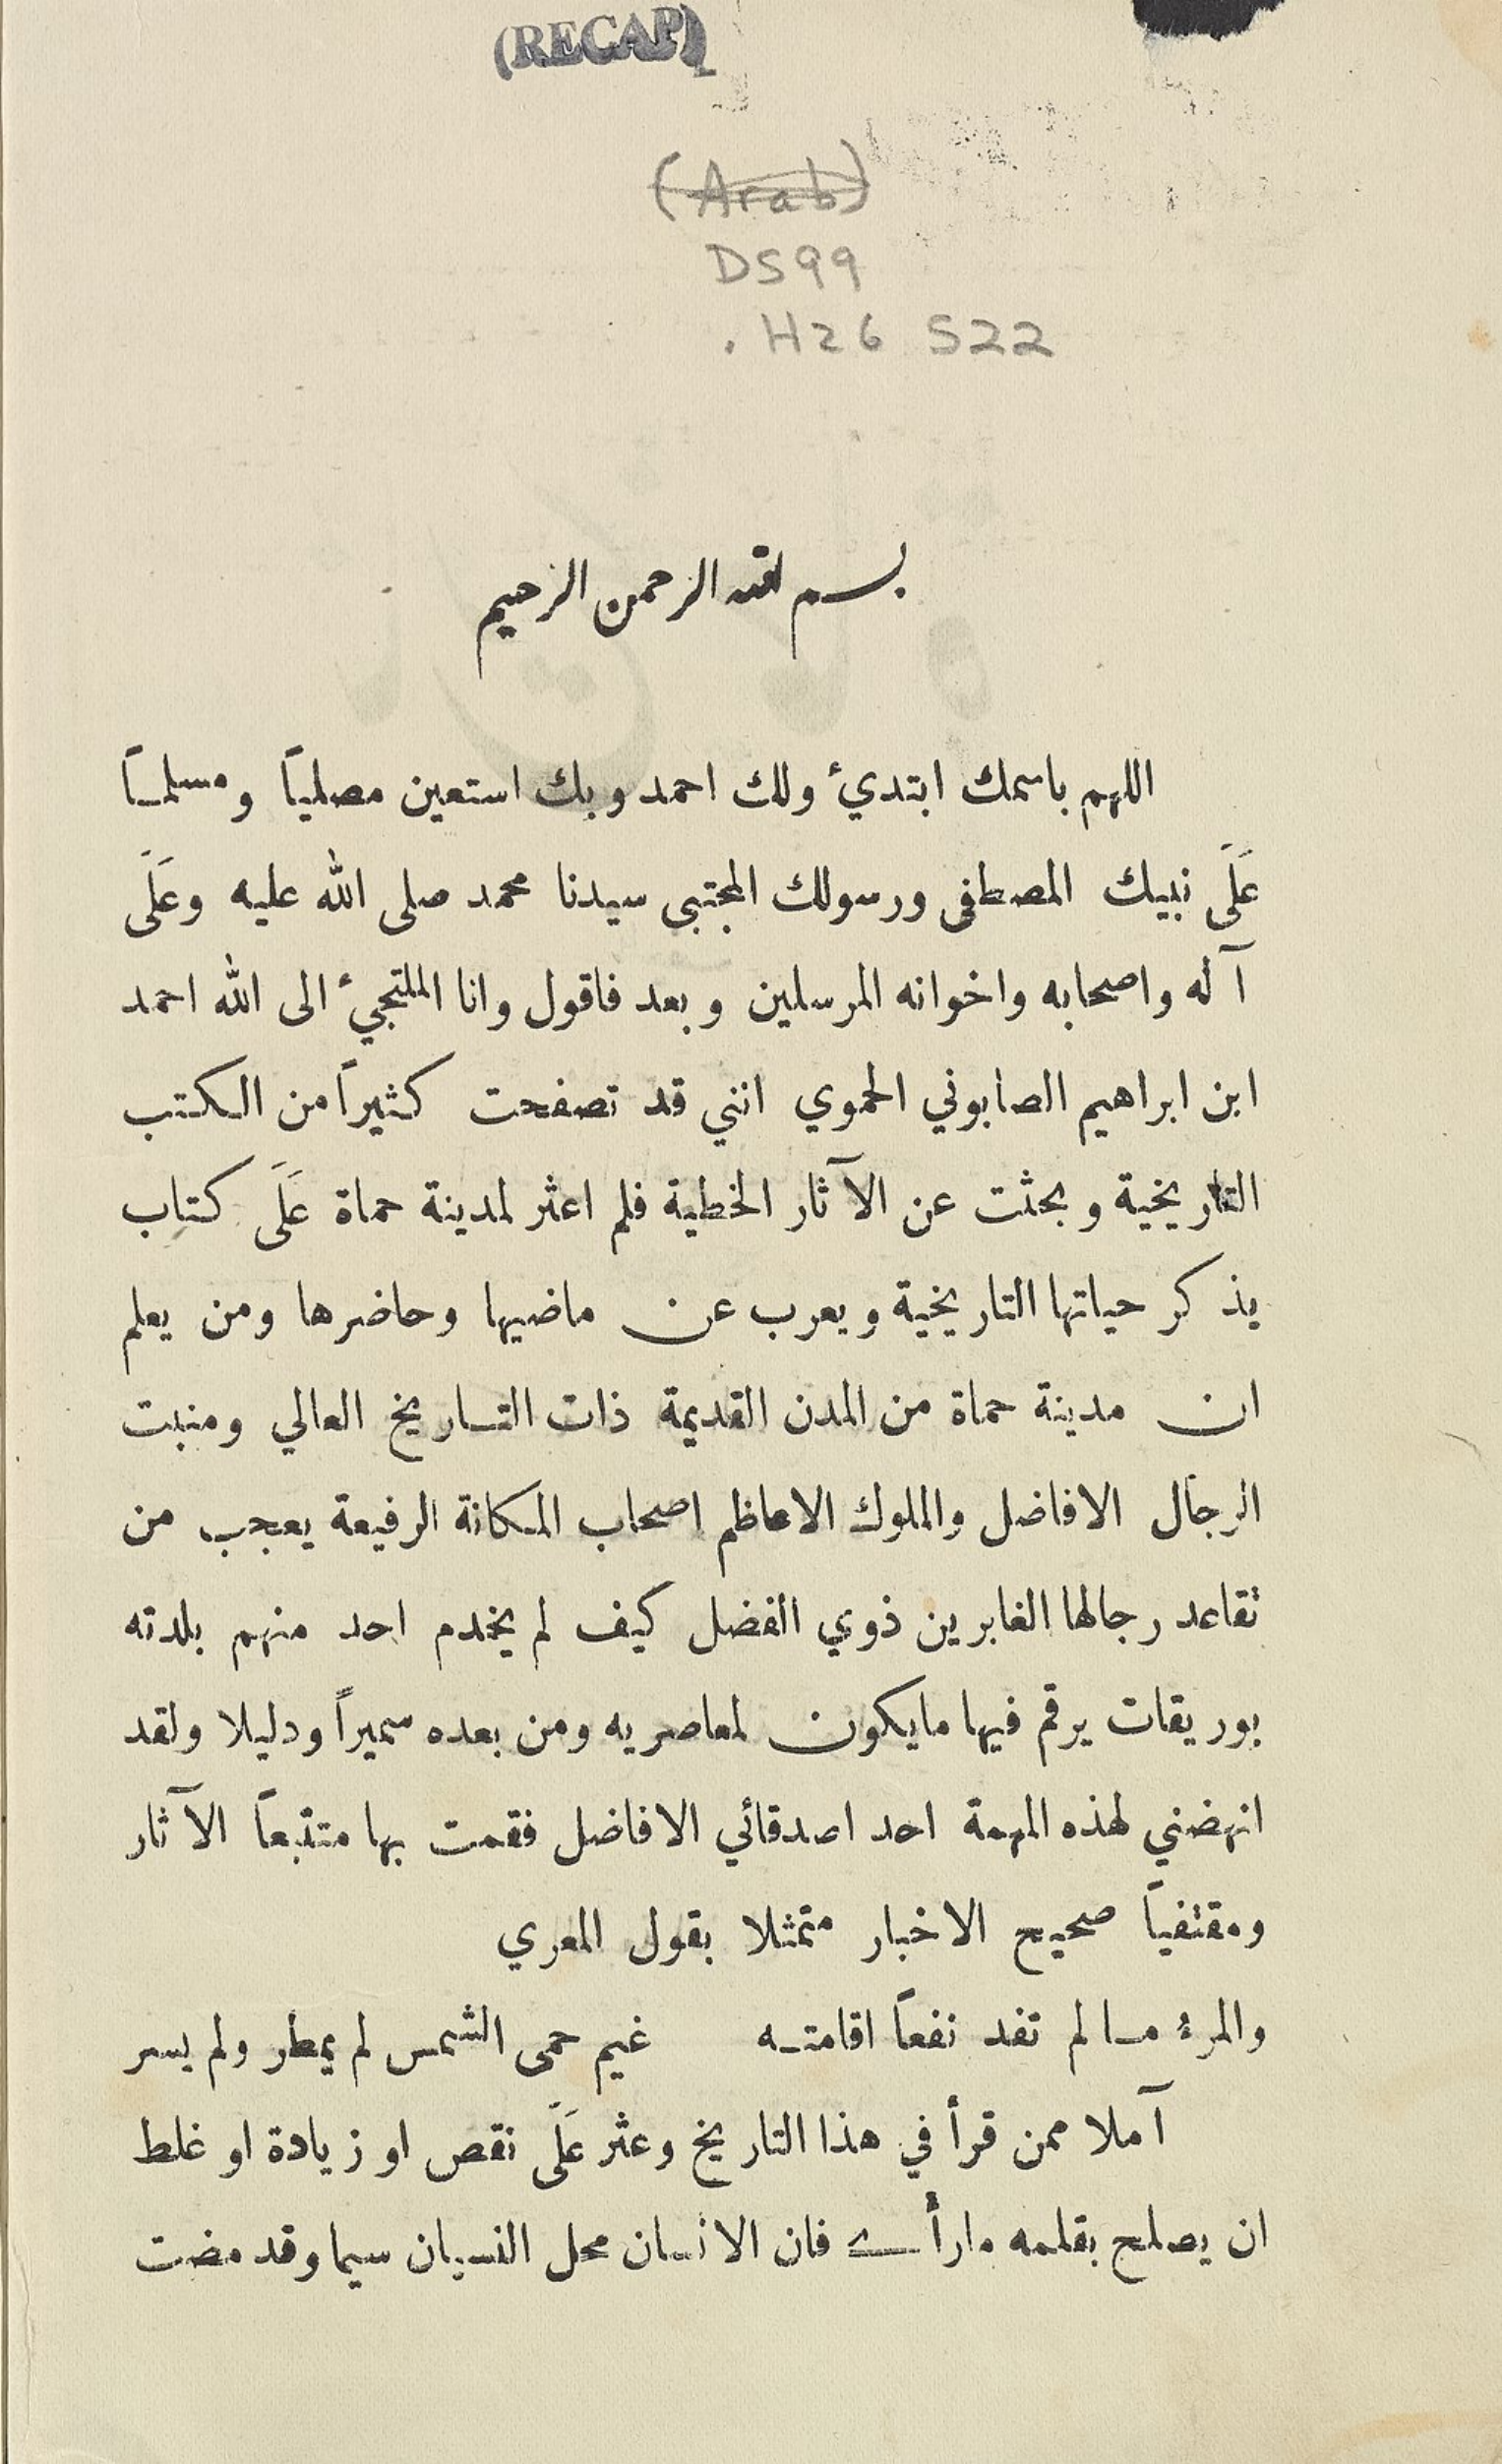 (RECAP)
(Arab)
DS99
.H26 S22
بسم الله الرحمن الرحيم
اللهم باسمك ابتدئ ولك احمد وبك استعين مصلياً ومسلماً
عَلَى نبيك المصطفى ورسولك المجتبى سيدنا محمد صلى الله عليه وعَلَى
آله واصحابه واخوانه المرسلين وبعد فاقول وانا الملتجئ الى الله احمد
ابن ابراهيم الصابوني الحموي انني قد تصفحت كثيراً من الكتب
التاريخية وبحثت عن الآثار الخطية فلم اعثر لمدينة حماة عَلَى كتاب
يذكر حياتها التاريخية ويعرب عن ماضيها وحاضرها ومن يعلم
ان مدينة حماة من المدن القديمة ذات التاريخ العالي ومنبت
الرجال الافاضل والملوك الاعاظم اصحاب المكانة الرفيعة يعجب من
تقاعد رجالها الغابرين ذوي الفضل كيف لم يخدم احد منهم بلدته
بوريقات يرقم فيها مايكون لمعاصريه ومن بعده سميراً ودليلا ولقد
انهضني لهذه المهمة احد اصدقائي الافاضل فقمت بها متتبعاً الآثار
ومقتفياً صحيح الاخبار متمثلا بقول المعري
والمرء مالم تفد نفعاً اقامته غيم حمى الشمس لم يمطر ولم يسر
آملا ممن قرأ في هذا التاريخ وعثر عَلَى نقص او زيادة او غلط
ان يصلح بقلمه مارأى فان الانسان محل النسيان سيما وقد مضت